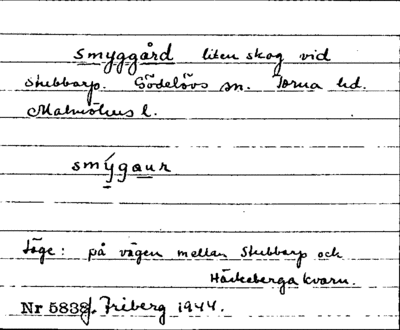 smyggård liten skog vid
Stubbarp. Gödelövs sn. Torna hd.
Malmöhus l.
smýgaur
Läge: på vägen mellan Stubbarp och
Häckeberga kvarn.
Nr 5838 J. Friberg 1944.